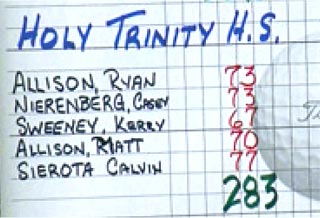 HOLY TRINITY H.S.
ALLISON, RYAN 73
NIERENBERG, CASEY 73
SWEENEY, KERRY 67
ALLISON, MATT 70
SIEROTA CALVIN 77
283